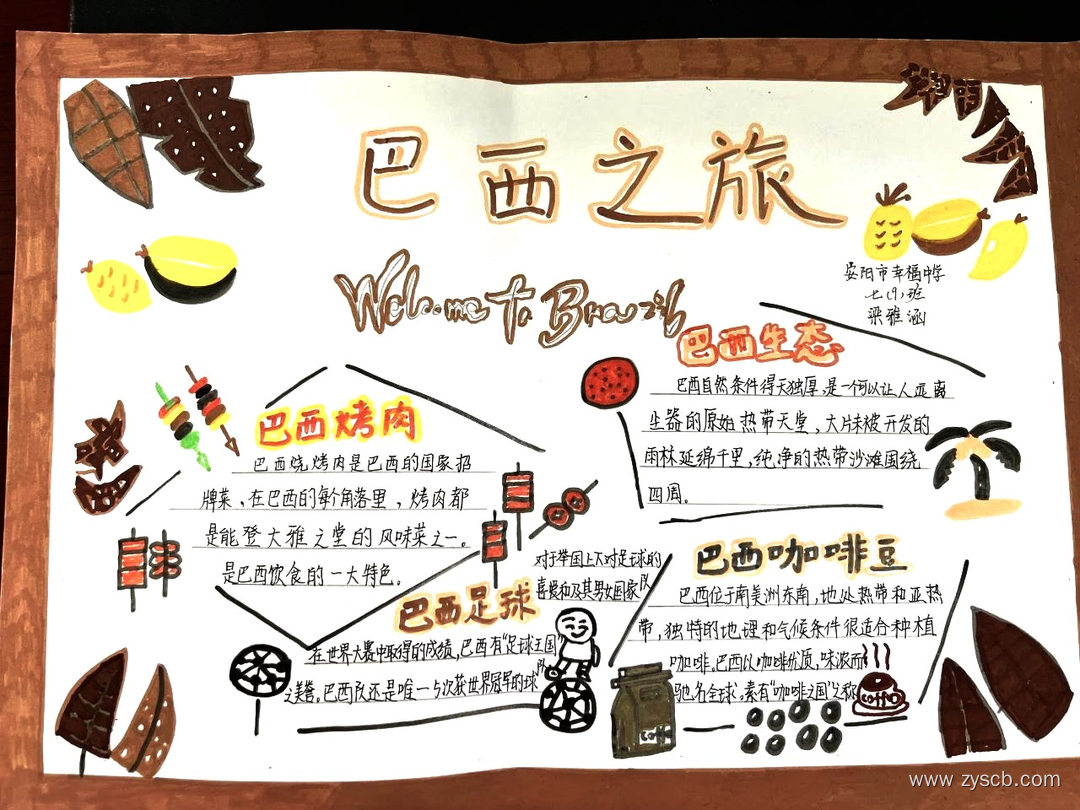 巴西之旅
Welcome To Brazil
安阳市幸福中学
七(9)班
梁雅涵
巴西生态
巴西自然条件得天独厚,是一个可以让人远离
尘器的原始热带天堂,大片未被开发的
雨林延绵千里,纯净的热带沙滩围绕
四周。
巴西烤肉
巴西烧烤肉是巴西的国家招
牌菜,在巴西的每个角落里,烤肉都
是能登大雅之堂的风味菜之一。
是巴西饮食的一大特色。
巴西足球
对于举国上下对足球的
喜爱和及其男女国家队
在世界大赛中取得的成绩,巴西有“足球王国”
之美誉。巴西队还是唯一5次获世界冠军的球队
巴西咖啡豆
巴西位于南美洲东南,地处热带和亚热
带,独特的地理和气候条件很适合种植
咖啡。巴西以咖啡优质、味浓而
驰名全球。素有“咖啡之国”之称
coffee
www.zyscb.com